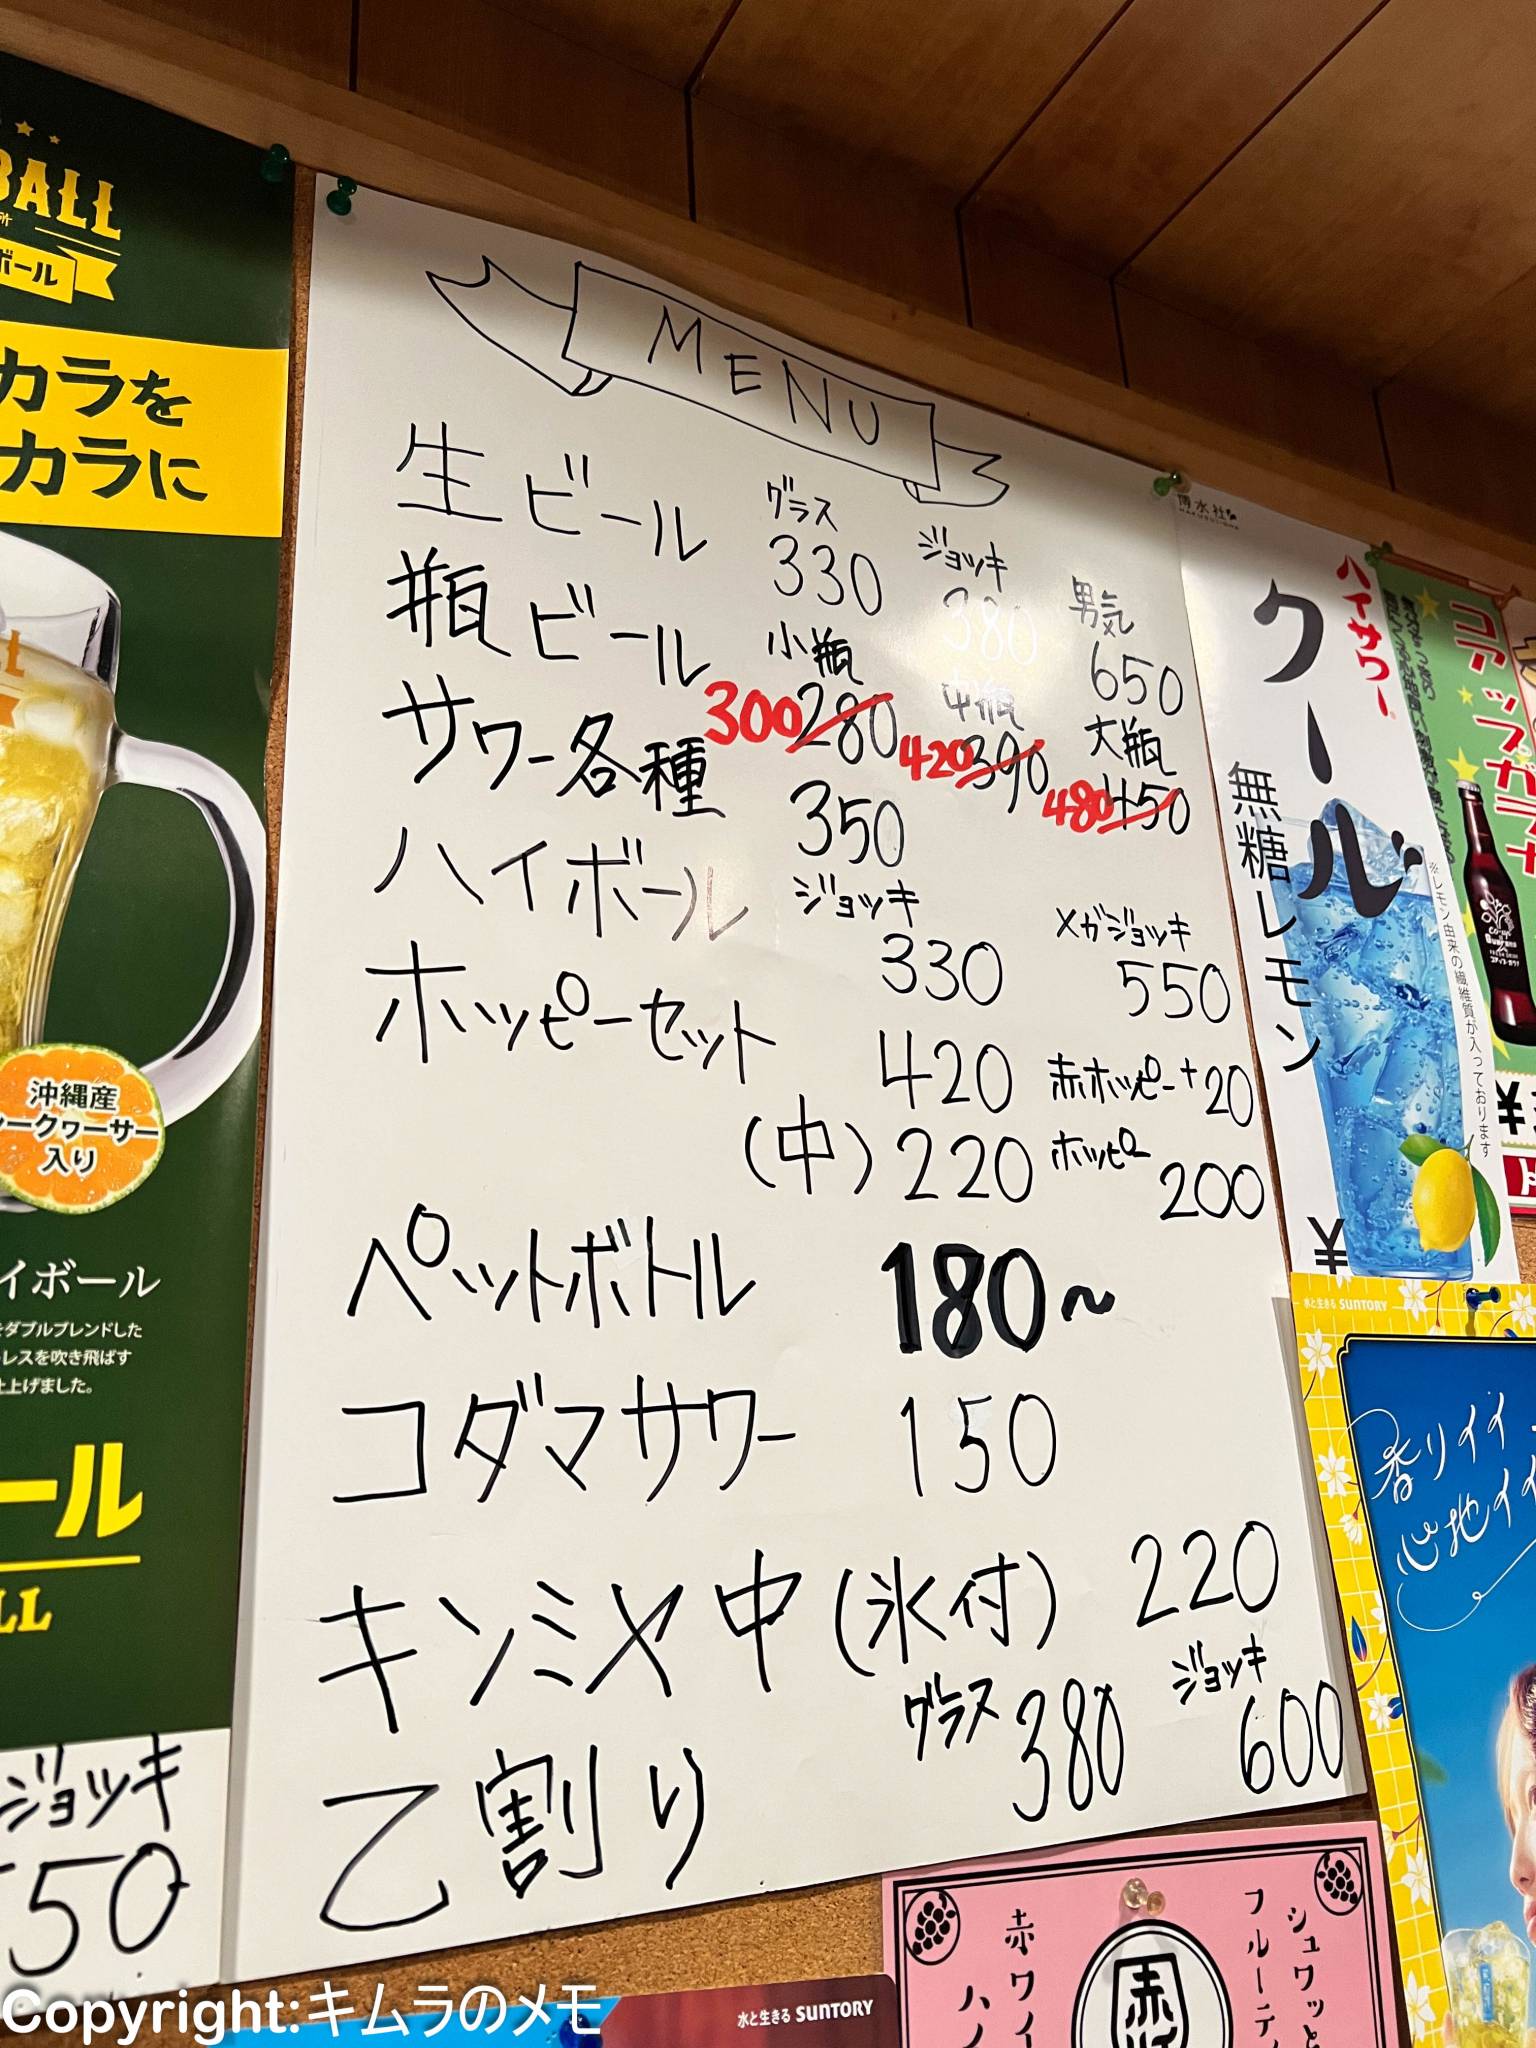 MENU
生ビール グラス 330 ジョッキ 380 男気 650
瓶ビール 小瓶 300 280 中瓶 420 390 大瓶 480 450
サワー各種 350
ハイボール ジョッキ 330 メガジョッキ 550
ホッピーセット 420 赤ホッピー+20
(中) 220 ホッピー 200
ペットボトル 180~
コダマサワー 150
キンミヤ中(氷付) 220
乙割り グラス 380 ジョッキ 600
BALL
ボール
カラを
カラに
沖縄産
ークヮーサー
入り
イボール
をダブルブレンドした
レスを吹き飛ばす
仕上げました。
ール
LL
ジョッキ
550
博水社
ハイサワー
クール
無糖レモン
※レモン由来の繊維質が入っております
¥
コアップガラナ
¥
水と生きる SUNTORY
香りイイ
心地イイ
水と生きる SUNTORY
赤ワイ
ハイ
赤
シュワッと
フルーティ
Copyright:キムラのメモ